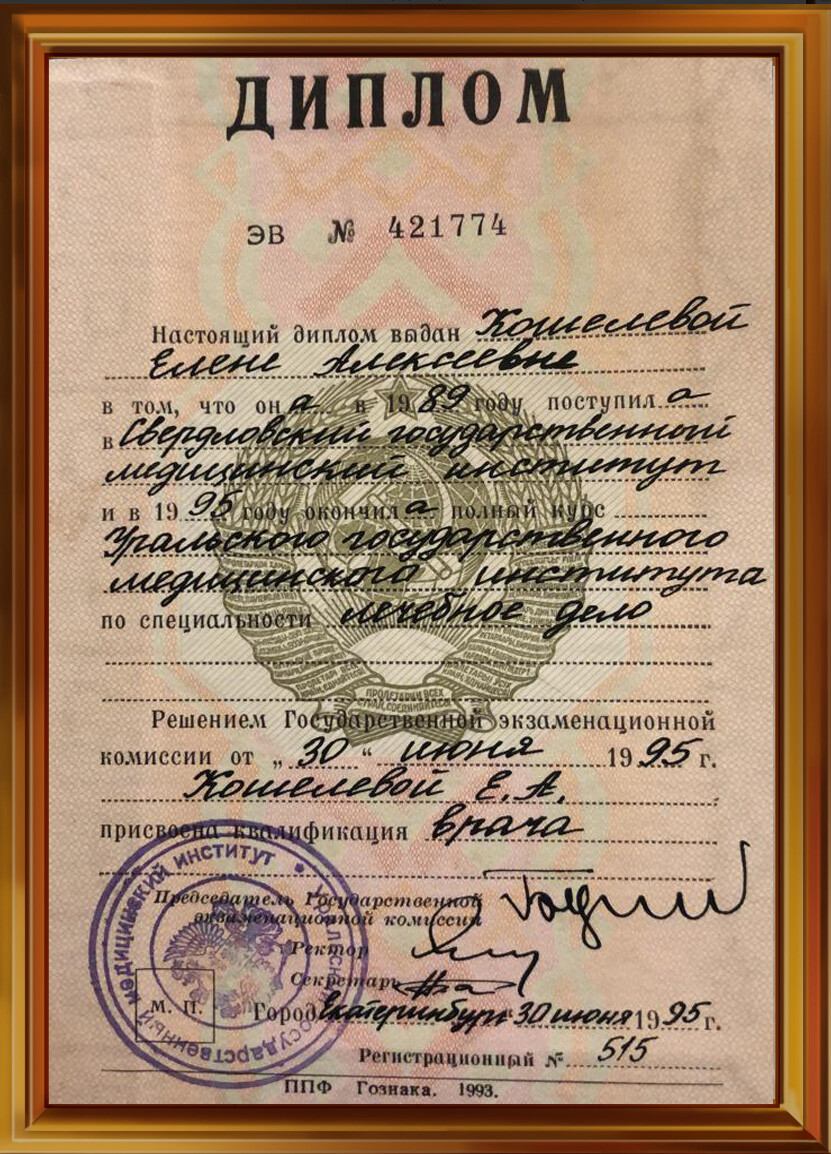 ДИПЛОМ
ЭВ № 421774
Настоящий диплом выдан Кошелевой
Елене Алексеевне
в том, что она в 1989 году поступила
в Свердловский государственный
медицинский институт
и в 1995 году окончила полный курс
Уральского государственного
медицинского института
по специальности лечебное дело
ПРОЛЕТАРИИ ВСЕХ
СТРАН, СОЕДИНЯЙТЕСЬ!
Решением Государственной экзаменационной
комиссии от „30“ июня 1995 г.
Кошелевой Е. А.
присвоена квалификация врача
Председатель Государственной
экзаменационной комиссии
Ректор
Секретарь
М. П.
Город Екатеринбург 30 июня 1995 г.
Регистрационный № 515
УРАЛЬСКИЙ ГОСУДАРСТВЕННЫЙ МЕДИЦИНСКИЙ ИНСТИТУТ
ППФ Гознака. 1993.